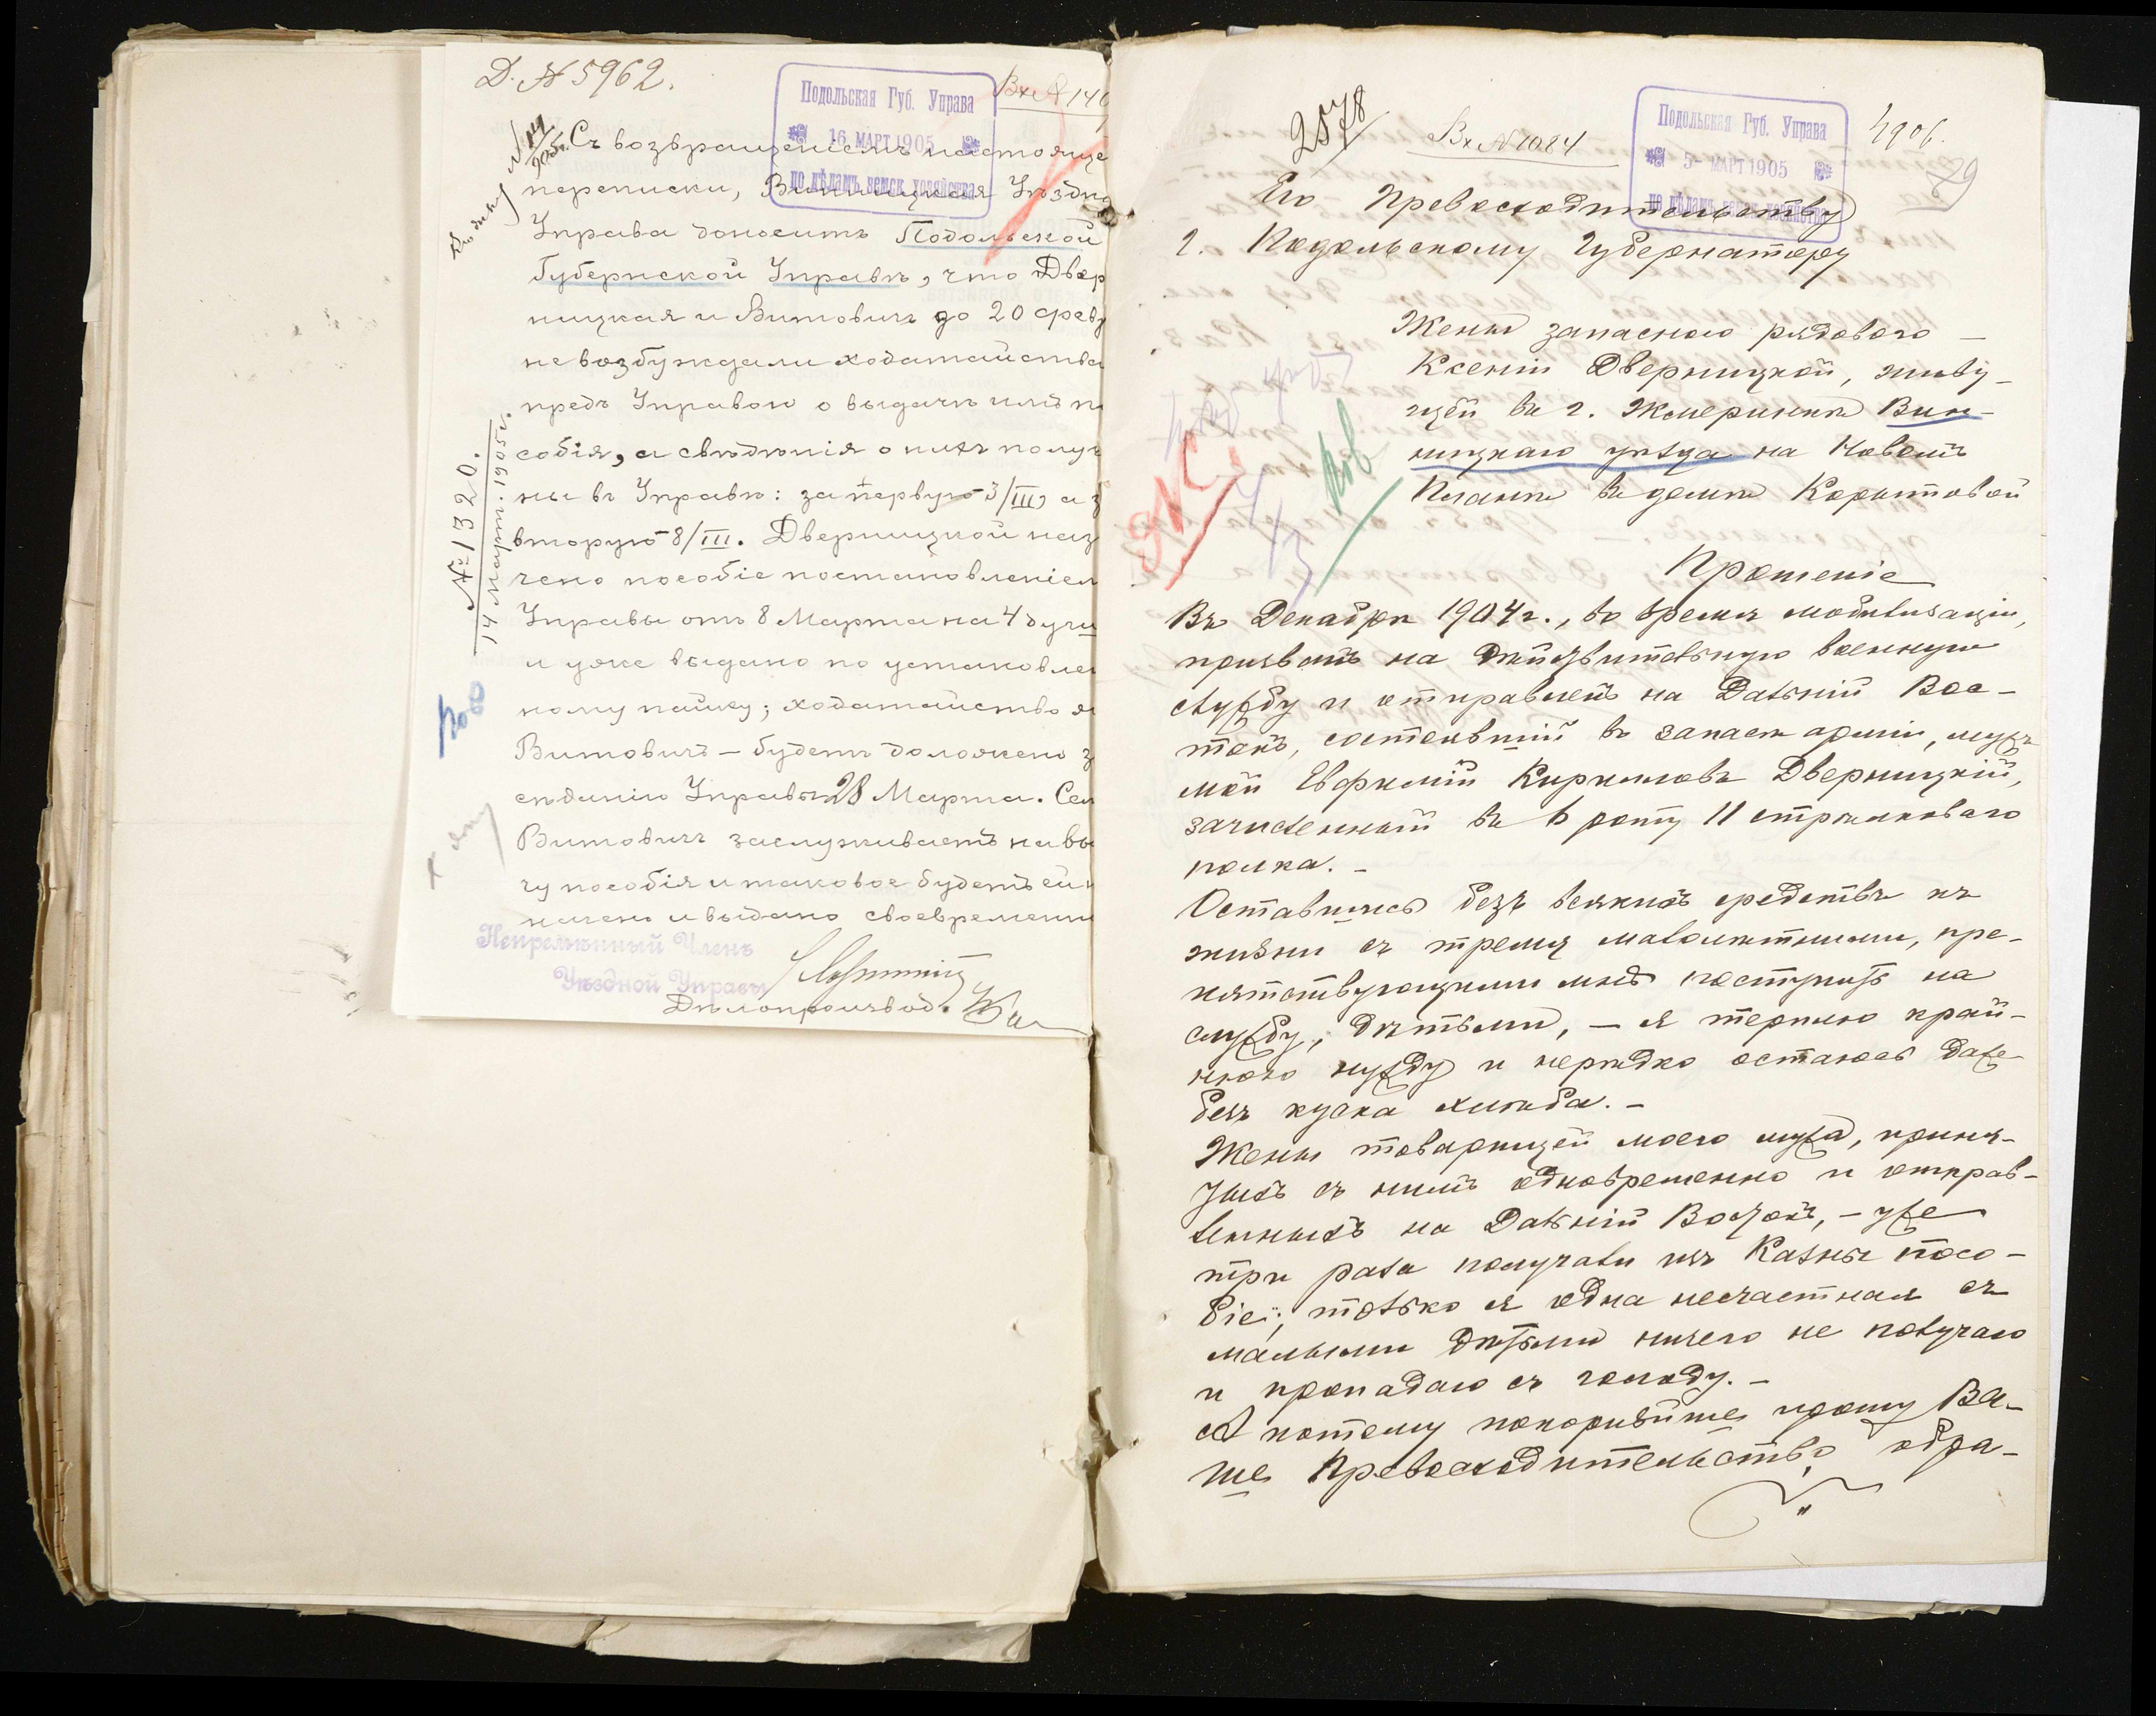 Д. № 5962.
Вх. № 140
Подольская Губ. Управа
16 МАРТ 1905
по дѣламъ земск. хозяйства
Съ возвращеніемъ настояще
переписки, Винницкая Уѣздна
Управа доноситъ Подольской
Губернской Управѣ, что Двер
ницкая и Витовичъ до 20 февр
не возбуждали ходатайства
предъ Управою о выдачѣ имъ по
собія, а свѣдѣнія о нихъ получ
ны въ Управѣ: за первую 3/III, а з
вторую 8/III. Дверницкой наз
чено пособіе постановленіем
Управы отъ 8 Марта на 4 души
и уже выдано по установлен
ному пайку; ходатайство я
Витовичъ – будетъ доложено з
сѣданію Управы 28 Марта. Сем
Витовичъ заслуживаетъ на вы
чу пособія и таковое будетъ ей н
начено и выдано своевременн
Непремѣнный Членъ
Уѣздной Управы
Дѣлопроизвод.
№ 1320.
14 Март. 1905 г.
2578
Вх. № 1084
Подольская Губ. Управа
5 - МАРТ 1905
по дѣламъ земск. хозяйства
Его Превосходительству
г. Подольскому Губернатору
Жены запаснаго рядового –
Ксеніи Дверницкой, живу–
щей въ г. Жмеринкѣ Вин–
ницкаго уѣзда на Новомъ
Планѣ въ домѣ Корытовой
Прошеніе
Въ Декабрѣ 1904 г., во время мобилизаціи,
призванъ на дѣйствительную военную
службу и отправленъ на Дальній Вос–
токъ, состоявшій въ запасѣ арміи, мужъ
мой Евфимій Кириловъ Дверницкій,
зачисленный въ 6 роту 11 стрѣлковаго
полка. –
Оставшись безъ всякихъ средствъ къ
жизни съ тремя малолѣтними, пре–
пятствующими мнѣ поступить на
службу, дѣтьми, – я терплю край–
нюю нужду и нерѣдко остаюсь даже
безъ куска хлѣба. –
Жены товарищей моего мужа, приня–
тыхъ съ нимъ одновременно и отправ–
ленныхъ на Дальній Востокъ, – уже
три раза получали изъ Казны посо–
біе; только я одна несчастная съ
малыми дѣтьми ничего не получаю
и пропадаю съ голоду. –
А потому покорнѣйше прошу Ва–
ше Превосходительство обра–